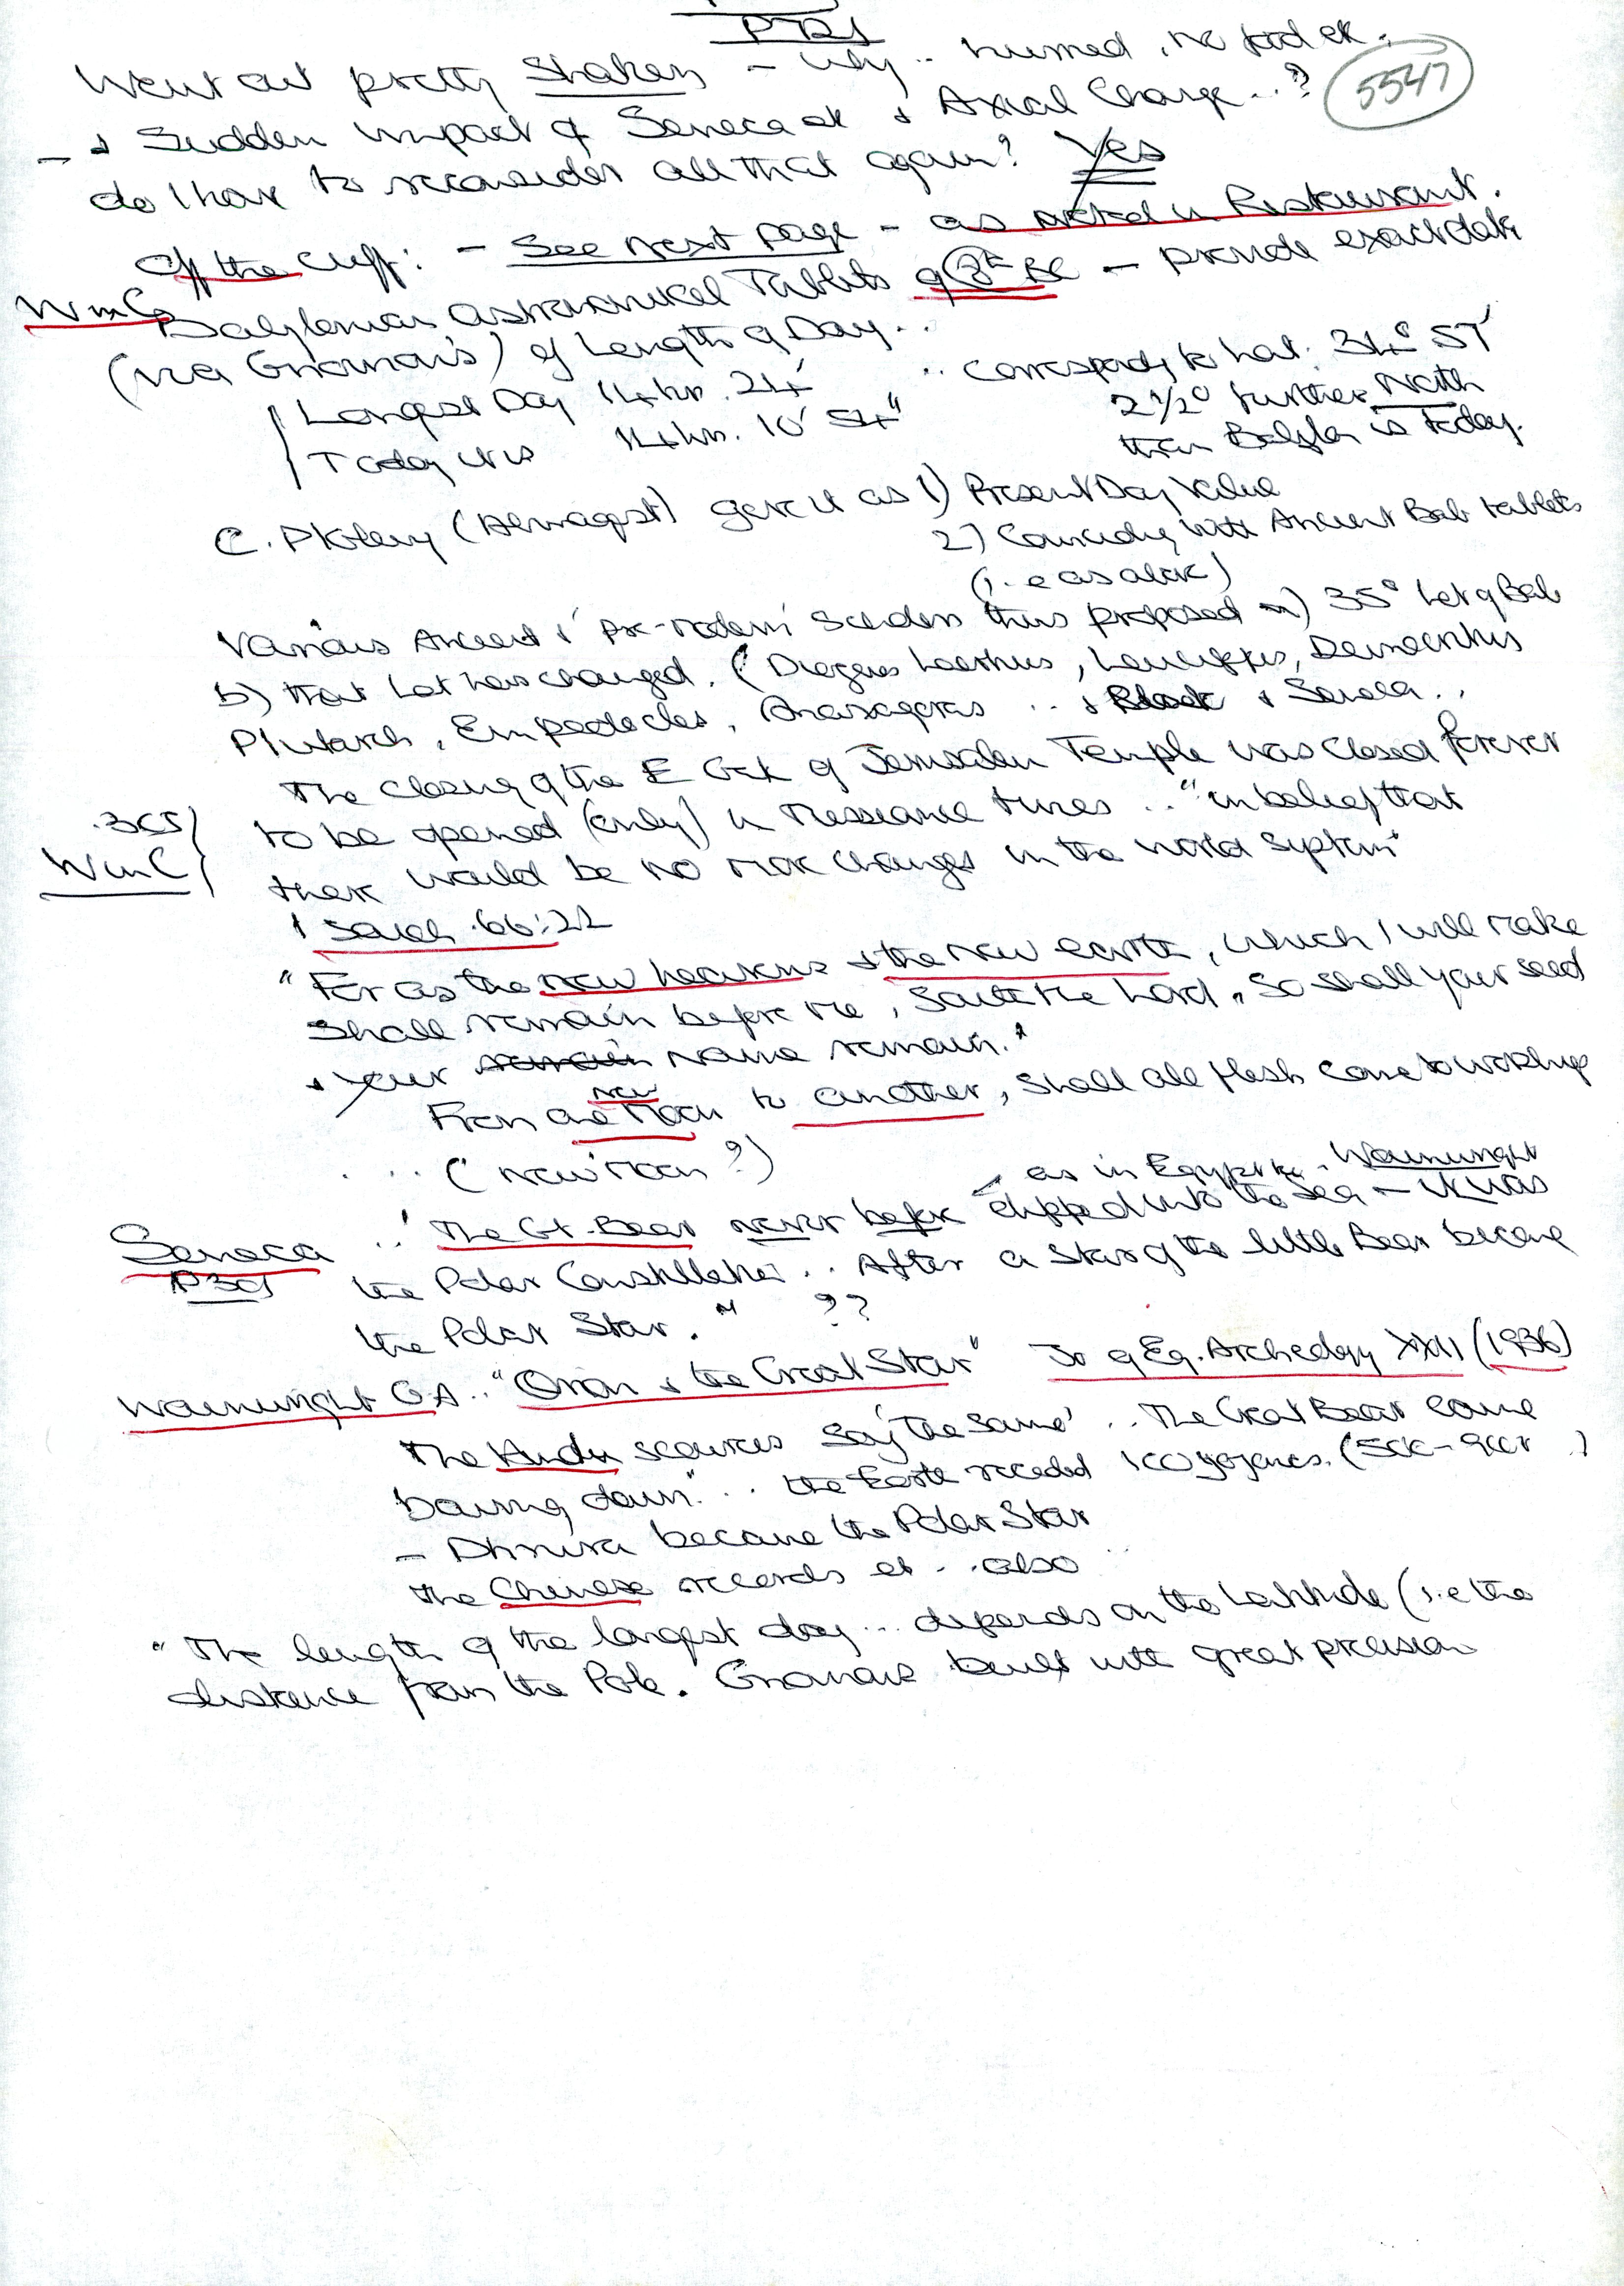 Went out pretty shaken – why .. hurried, no food etc.
5547
– & Sudden impact of Seneca etc & Axial Change ..?
do I have to reconsider all that again? Yes
Off the cuff: – See next page – as noted in Restaurant.
WinC
Babylonian astronomical Tablets of 8th BC – provide exact date
(via Gnomons) of Length of Day ..
Longest Day 14 hrs. 24'
.. Corresponds to Lat. 34° 57'
Today it is 14 hrs. 10' 54"
2 1/2° further North
than Babylon is today.
C. Ptolemy (Almagest) gave it as 1) Present Day Value
2) Coinciding with Ancient Bab tablets
(i.e as above)
Various Ancient & 'pre-modern' scholars thus proposed a) 35° Lat of Bab
b) that Lat has changed. (Diogenes Laertius, Leucippus, Democritus
Plutarch, Empedocles, Anaxagoras .. & & Seneca ..
The closing of the E Gate of Jerusalem Temple was closed forever
.305
WinC
to be opened (only) in Messianic times .. "in belief that
there would be no more changes in the world system"
Isaiah .66:22
"For as the new heavens & the new earth, which I will make
shall remain before me, saith the Lord, so shall your seed
& your remain name remain."
From one new Moon to another, shall all flesh come to worship
... ('new' Moon ?)
as in Egypt – Wainwright
Seneca
P301
.. 'The Gt. Bear never before dipped into the Sea – it was
the Polar Constellation .. After a star of the little Bear became
the Polar Star." ??
Wainwright G.A. .. "Orion & the Great Star" Jo of Eg. Archeology XXII (1936)
The Hindu sources say 'the same' .. The Great Bear came
bowing down" .. the Earth receded 100 yojanas. (500-900 )
– Dhruva became the Polar Star
the Chinese records etc .. also
"The length of the longest day ... depends on the latitude (i.e the
distance from the Pole. Gnomons built with great precision